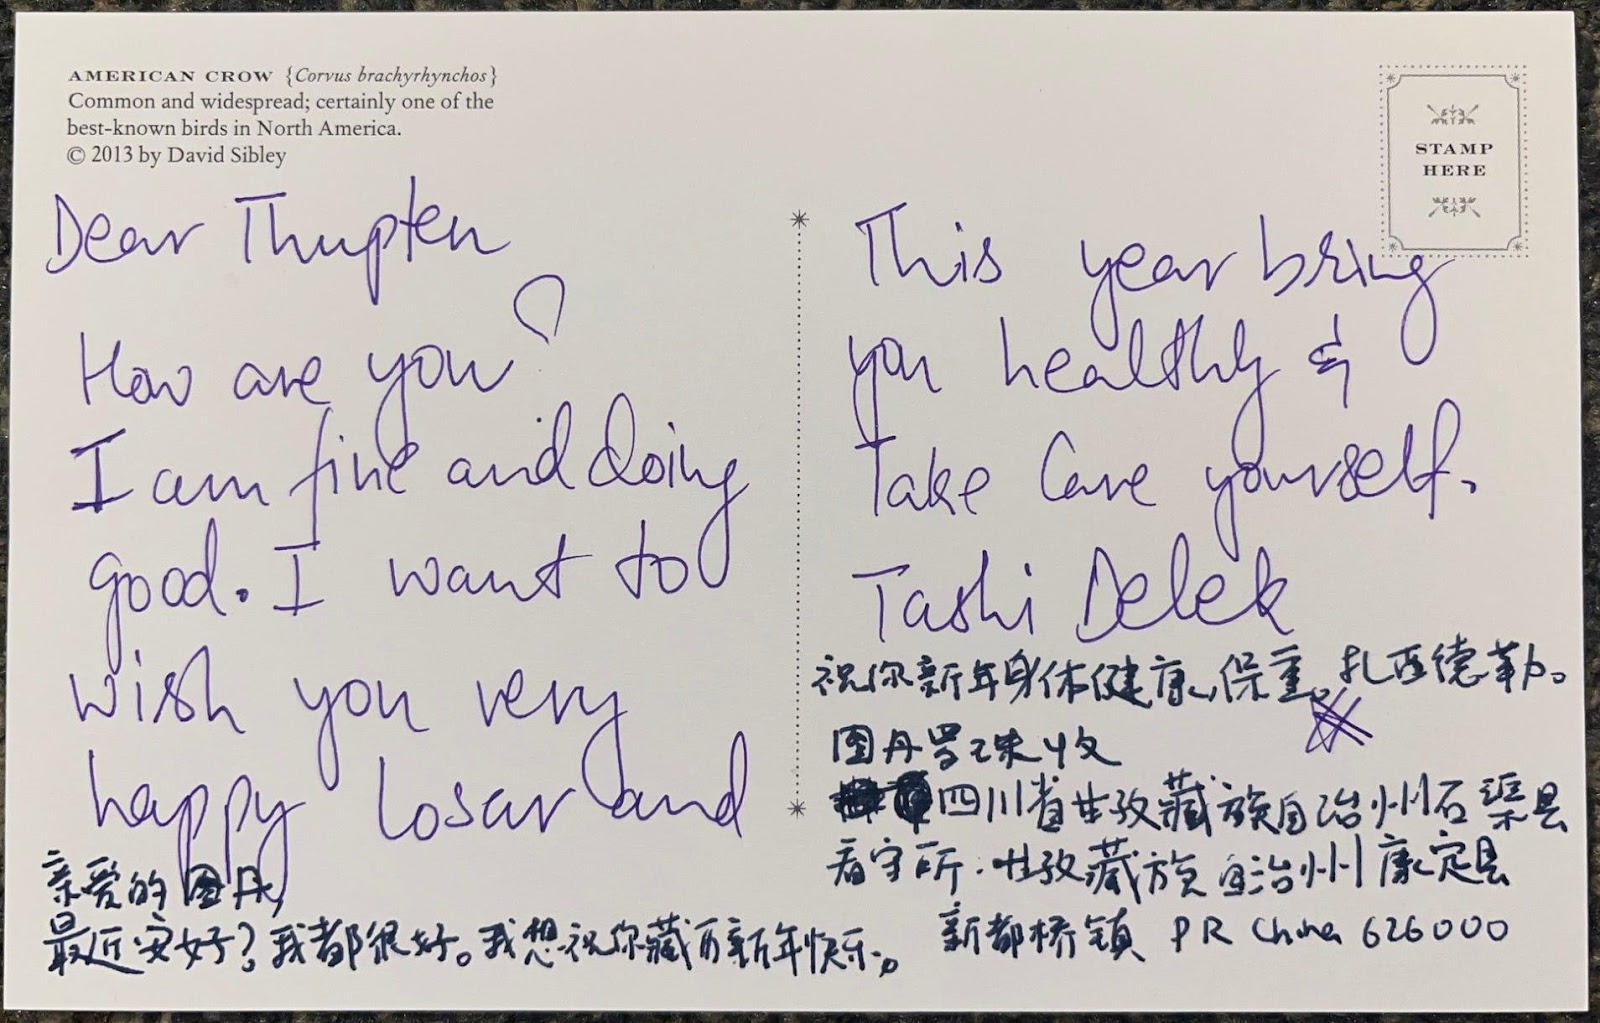 AMERICAN CROW {Corvus brachyrhynchos}
Common and widespread; certainly one of the
best-known birds in North America.
© 2013 by David Sibley
STAMP
HERE
Dear Thupten
How are you?
I am fine and doing
good. I want to
wish you very
happy Losar and
亲爱的图丹,
最近安好？我都很好。我想祝你藏历新年快乐。
This year bring
you healthy &
Take Care yourself.
Tashi Delek
祝你新年身体健康、保重。扎西德勒。
图丹罗珠收
四川省甘孜藏族自治州石渠县
看守所. 甘孜藏族自治州康定县
新都桥镇 PR China 626000